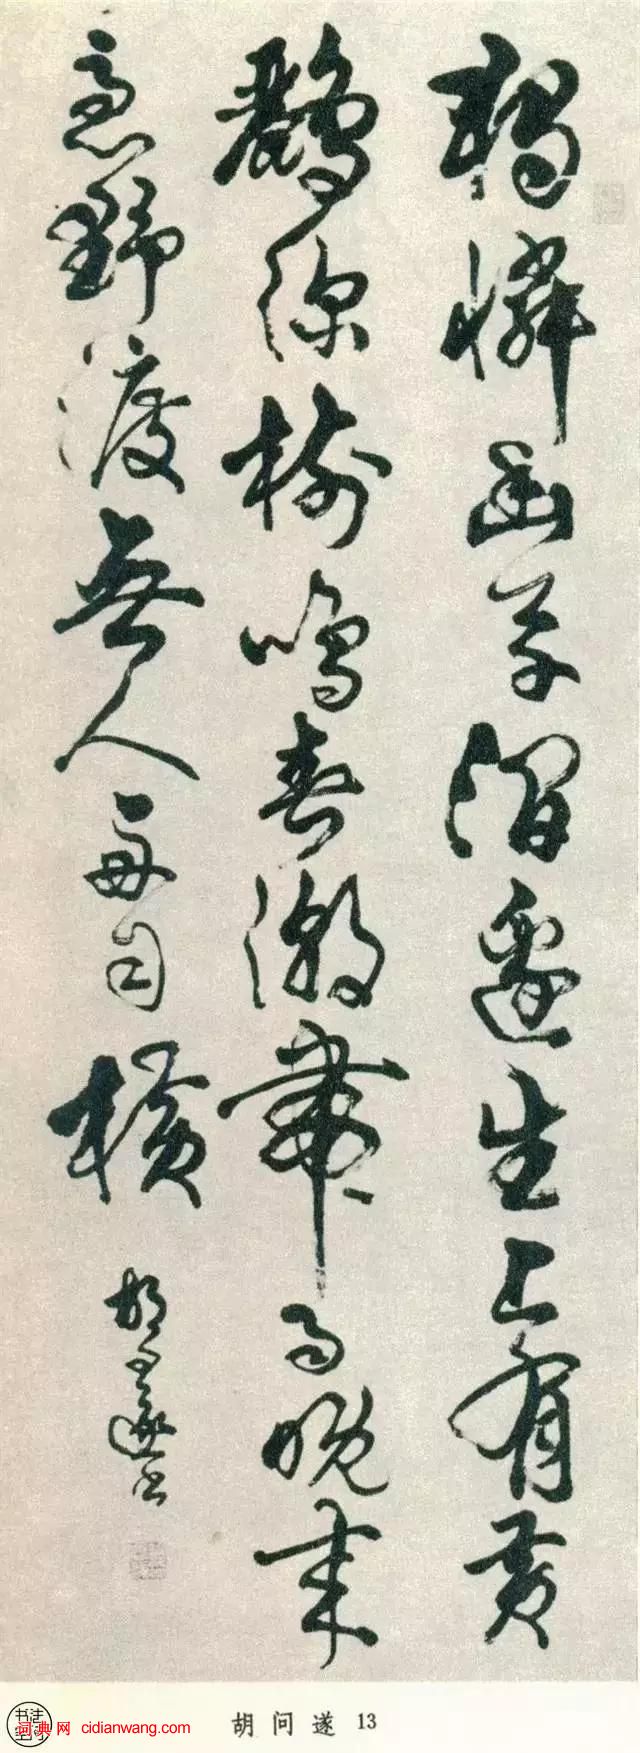 獨憐幽草澗邊生上有黃
鸝深樹鳴春潮帶雨晚來
急野渡無人舟自橫
胡問遂書
胡问遂 13
词典网 cidianwang.com